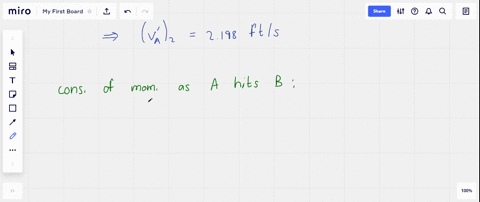 miro My First Board Share
⇒ (v'A)2 = 2.198 ft/s
cons. of mom. as A hits B :
100%